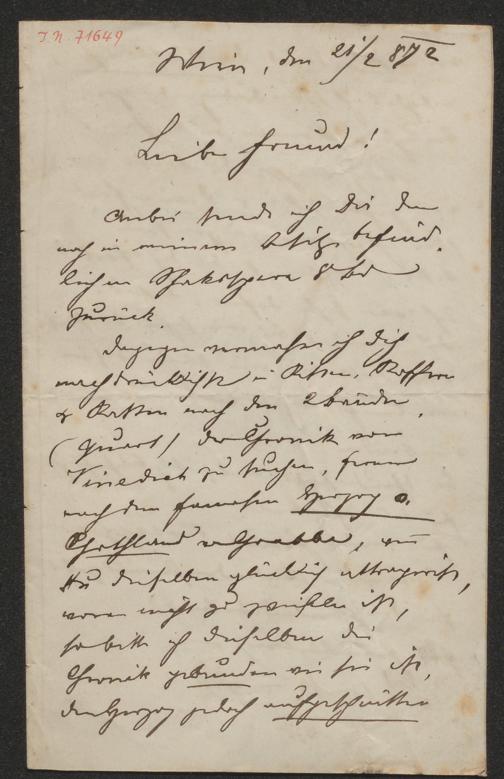 J. N. 71649
Wien, den 21/2 872
Lieber Freund!
Anbei sende ich Dir den
noch in meinem Besitz befind-
lichen Shakespeare 8 Bd
zurück.
Dagegen ermahne ich Dich
nachdrücklichst in Kisten, Koffern
& Kasten nach den 2 Bänden
(Quart) der Chronik von
Venedig zu suchen, ferner
nach dem famosen Herzog v.
Gothland v Grabbe, wenn
Du dieselben glücklich
woran nicht zu zweifeln ist,
so bitte ich dieselben die
Chronik gebunden wie sie ist,
den Herzog jedoch aufgeschnitten